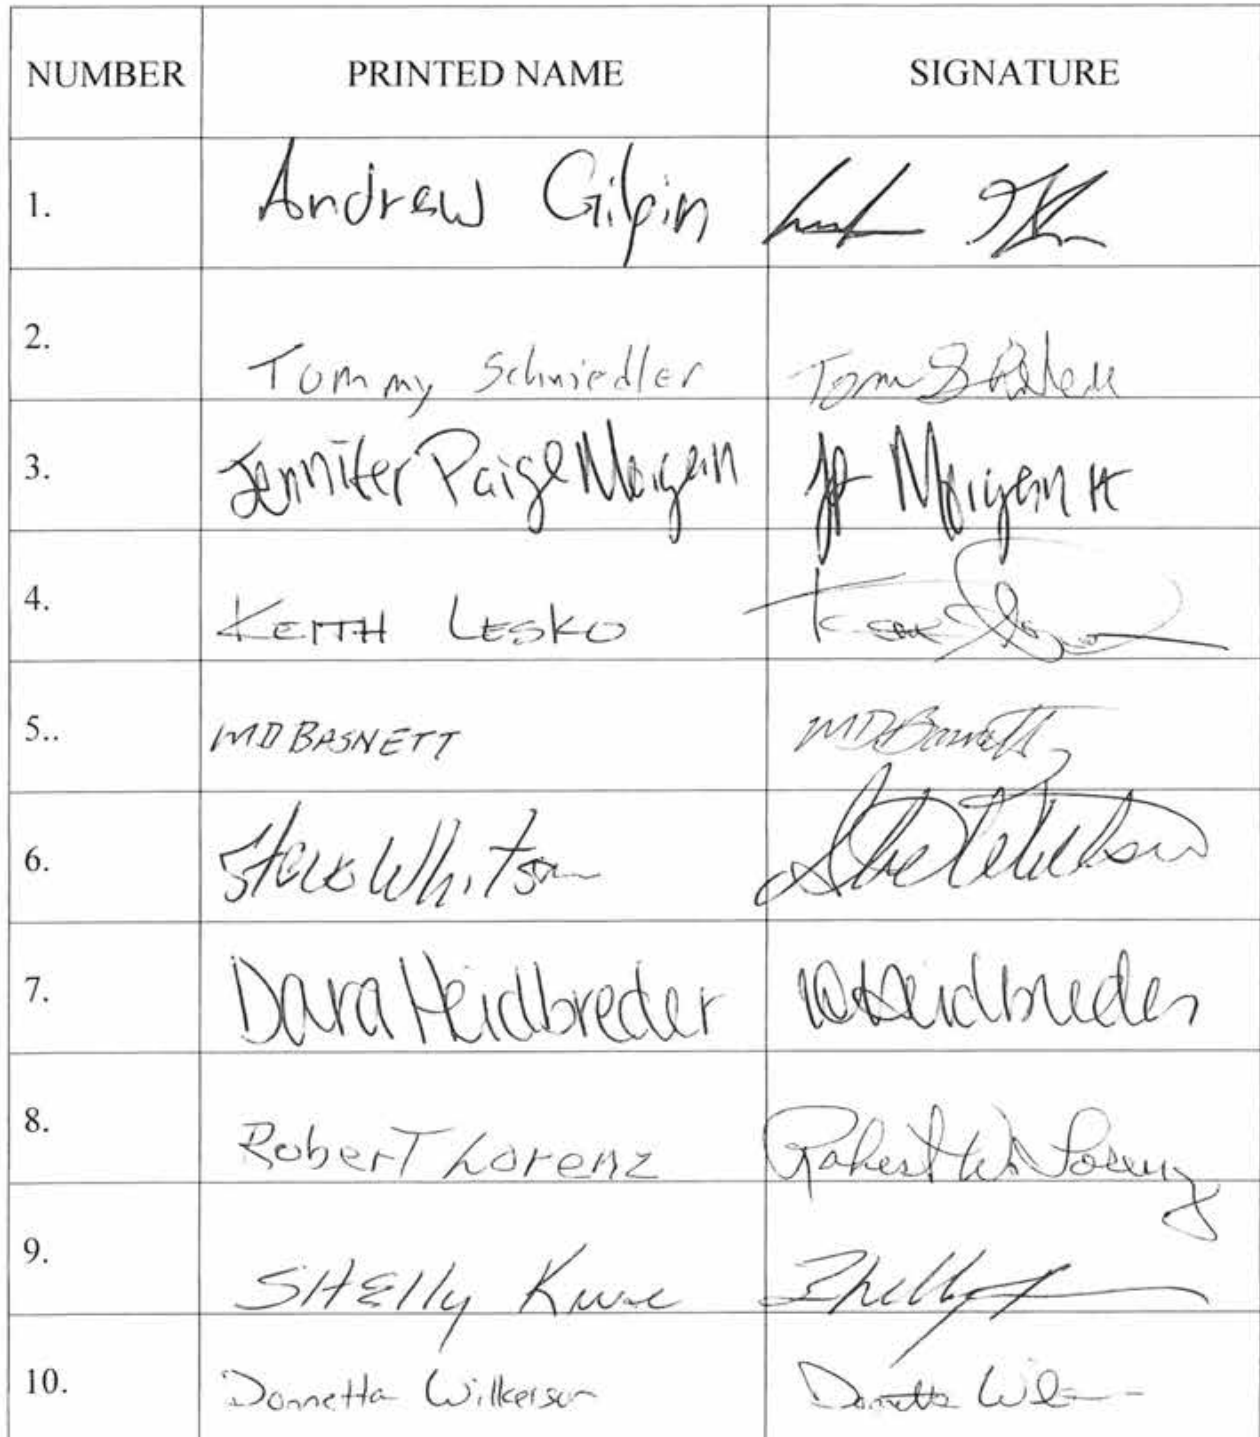 NUMBER PRINTED NAME SIGNATURE
1. Andrew Gilpin
2. Tommy Schmiedler Tom
3. Jennifer Paige Morgan JP Morgan
4. KEITH LESKO
5.. MD BASNETT MD Basnett
6. Steve Whitson
7. Dara Heidbreder D Heidbreder
8. Robert Lorenz Robert W. Lorenz
9. SHElly Shelly
10. Donnetta Wilkerson Donnetta